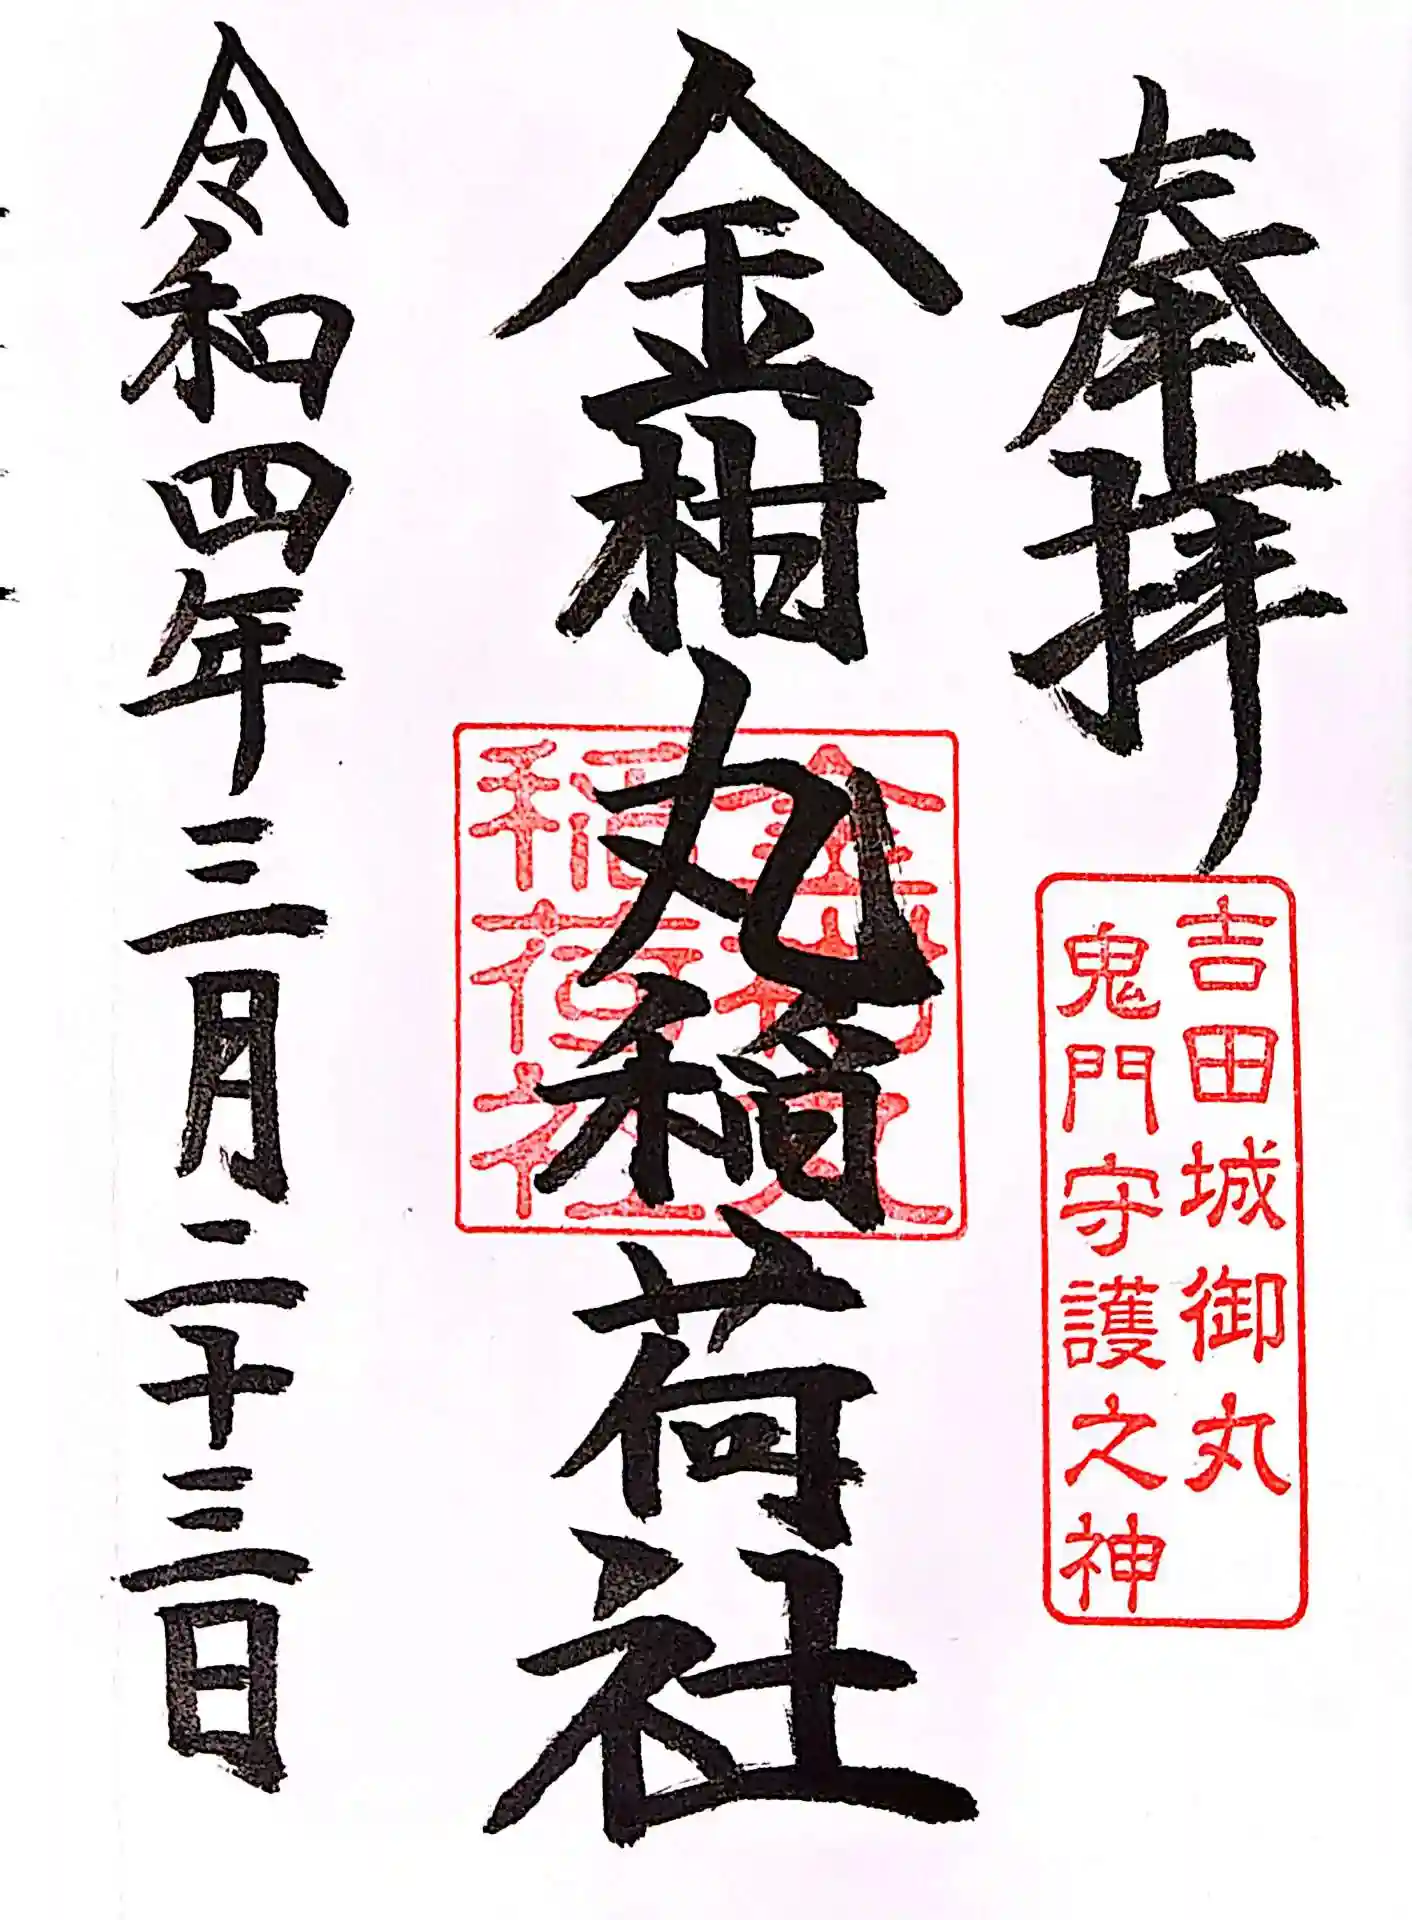 奉拝
吉田城御丸
鬼門守護之神
金柑丸稲荷社
金柑丸
稲荷社
令和四年三月二十三日